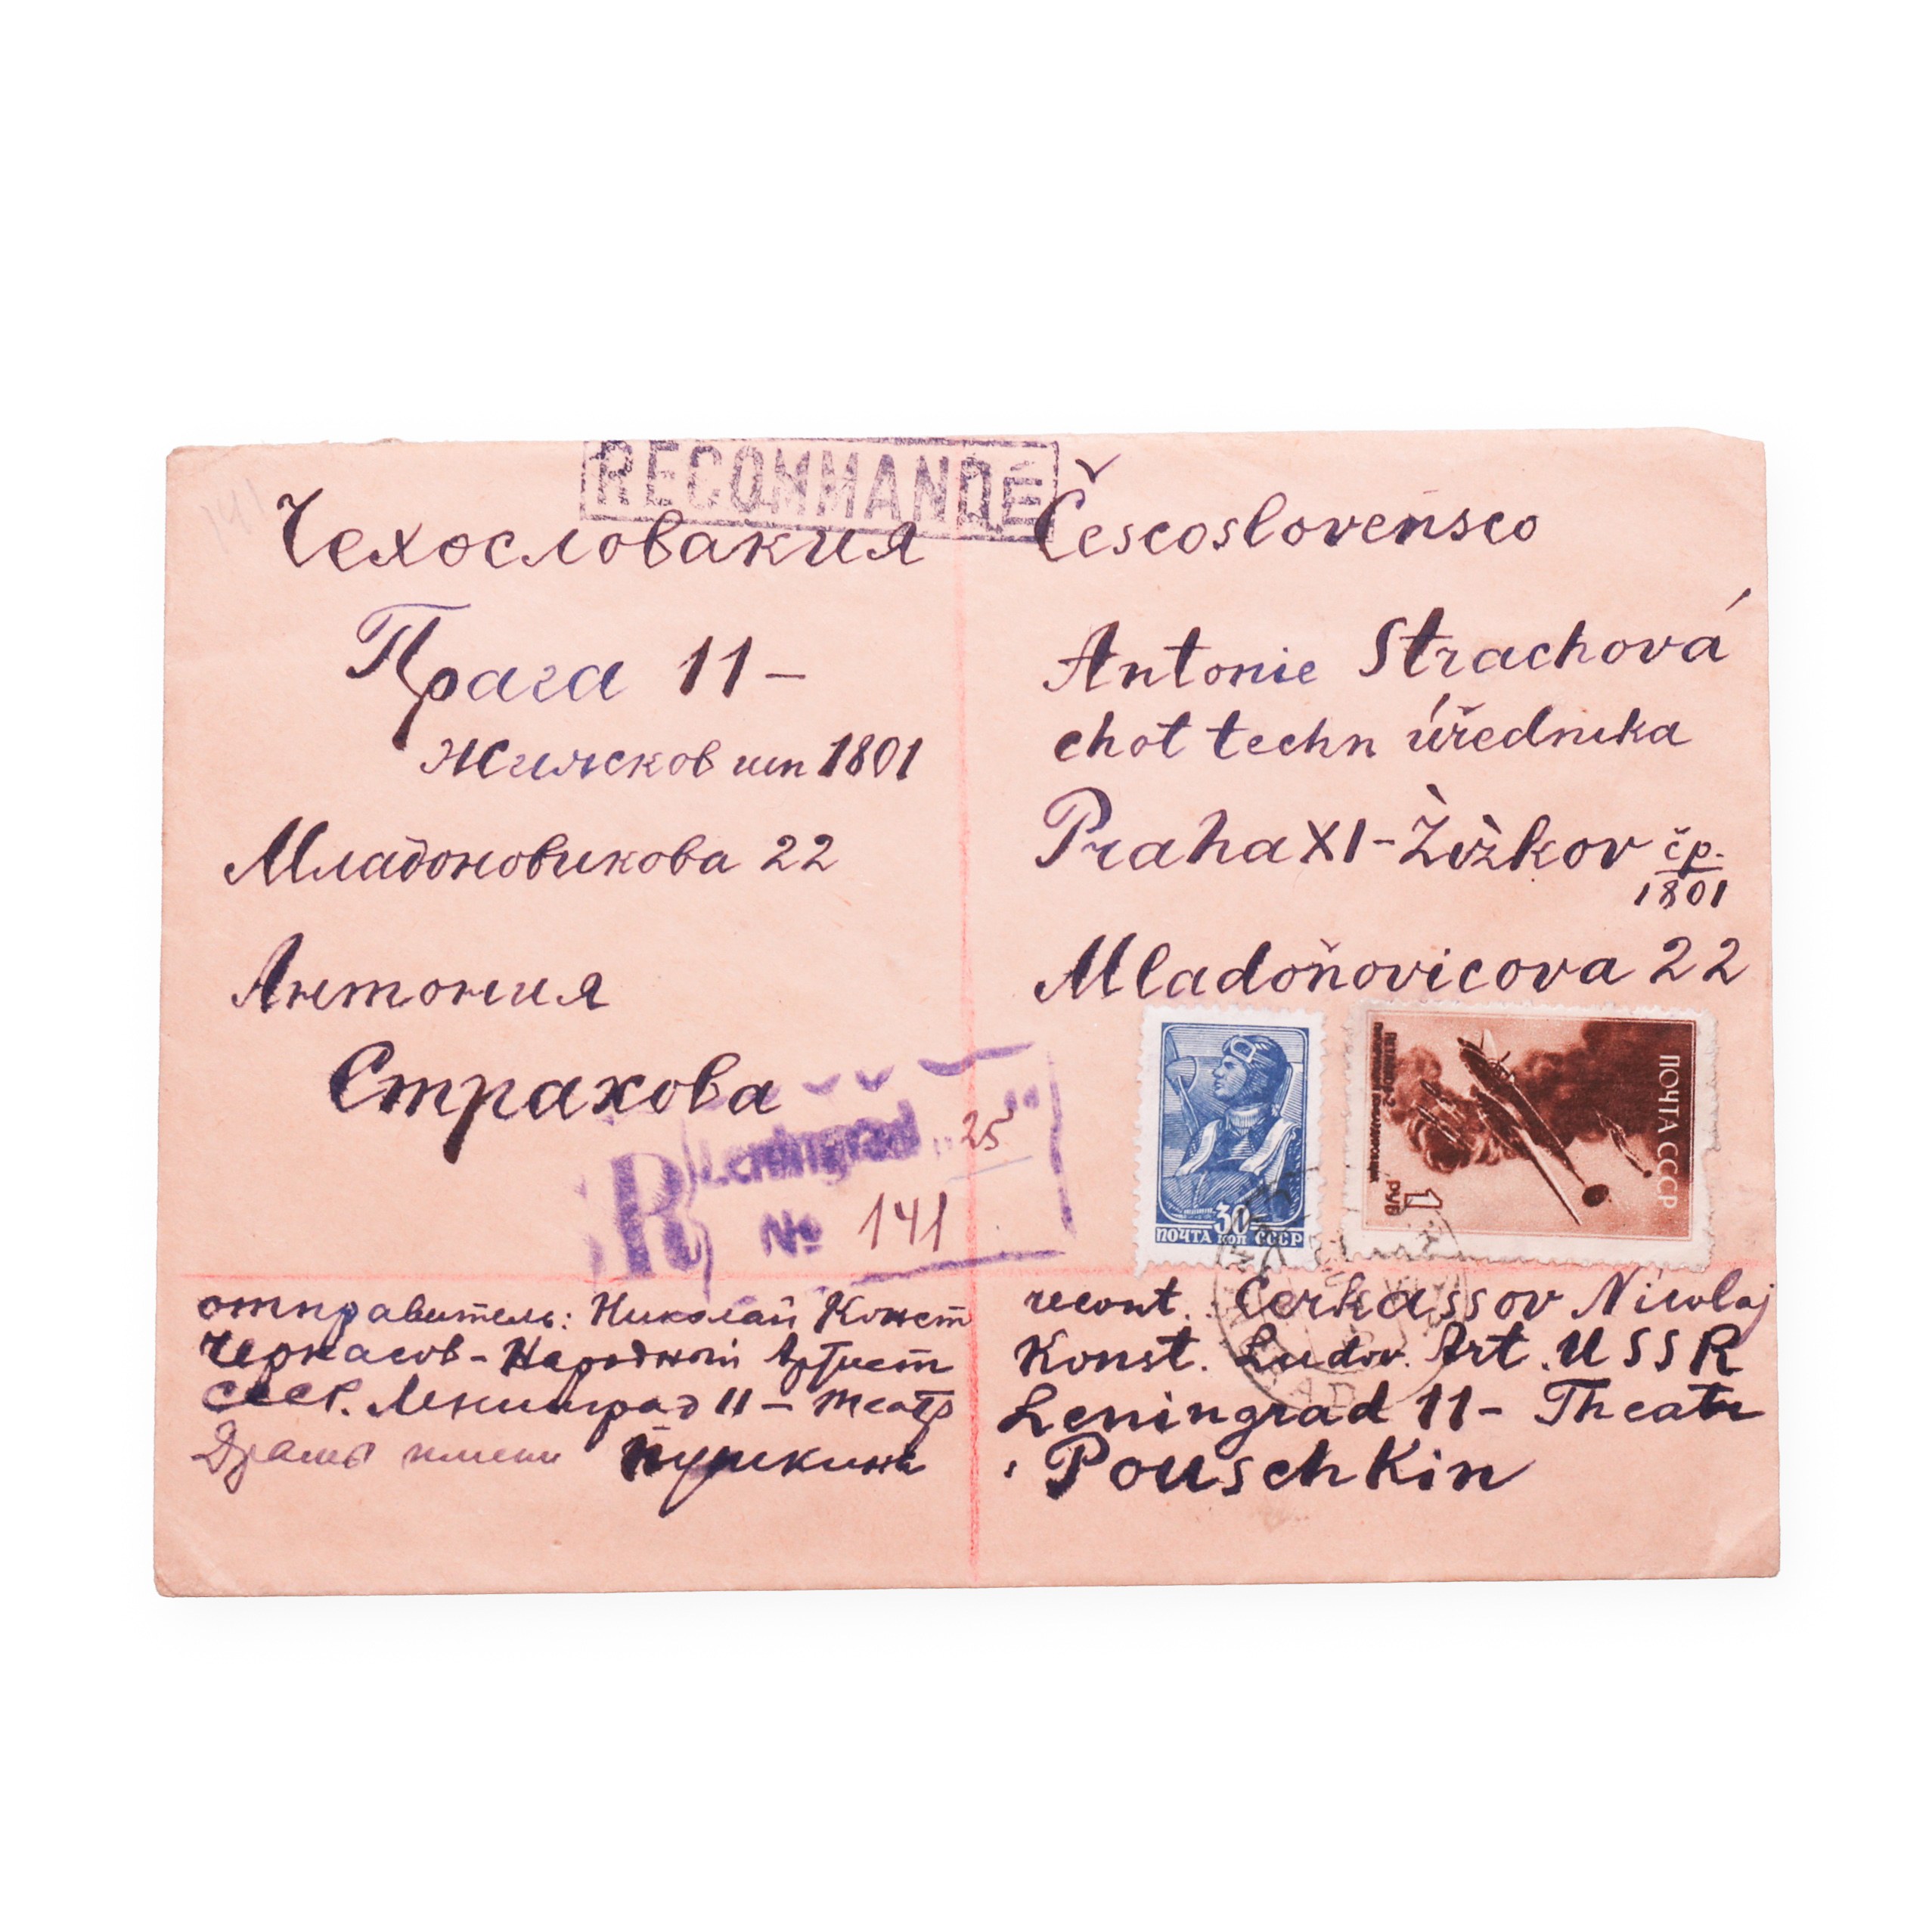 RECOMMANDÉ
Чехословакия
Прага 11 –
Жижсков 1801
Младоновикова 22
Антония
Страхова
Českoslovensco
Antonie Strachová
chot techn úřednika
Praha XI – Žižkov čp.
1801
Mladoňovicova 22
R Leningrad „25"
№ 141
30
ПОЧТА коп СССР
ПОЧТА СССР
1
РУБ
отправитель: Николай Конст
Черкасов – Народный Артист
СССР. Ленинград 11 – театр
Драмы имени Пушкина
Cerkassov Nicolaj
Konst. Ludov. Art. USSR
Leningrad 11 – Theatr
Pouschkin